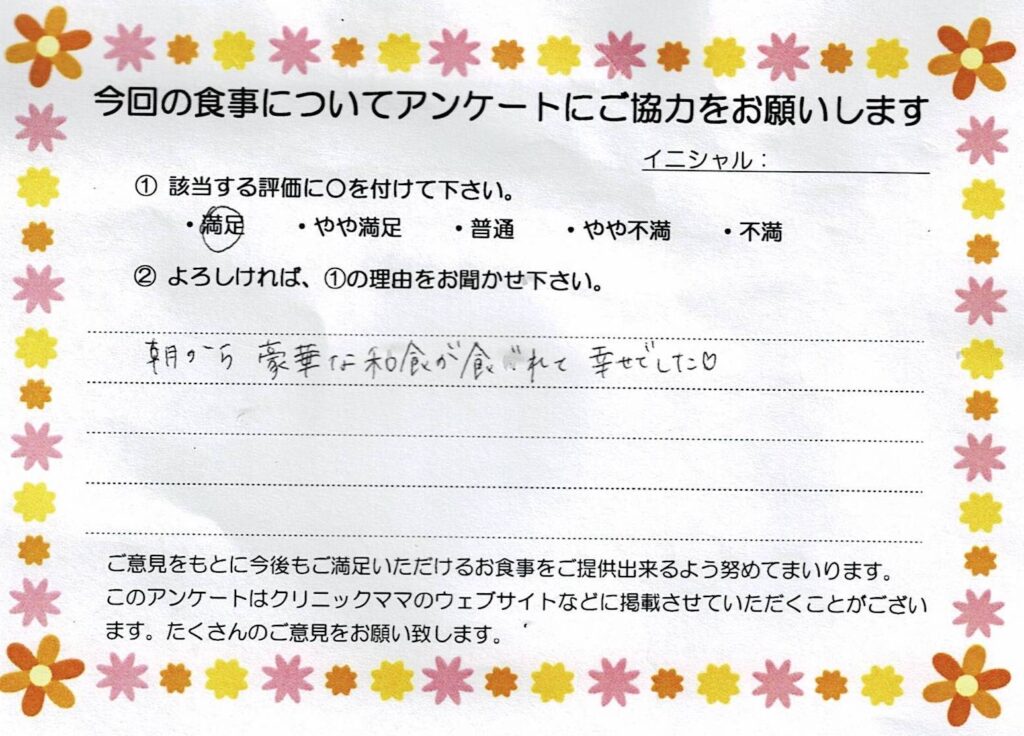 今回の食事についてアンケートにご協力をお願いします
イニシャル：
① 該当する評価に〇を付けて下さい。
・満足 ・やや満足 ・普通 ・やや不満 ・不満
② よろしければ、①の理由をお聞かせ下さい。
朝から 豪華な和食が食べれて 幸せでした♡
ご意見をもとに今後もご満足いただけるお食事をご提供出来るよう努めてまいります。
このアンケートはクリニックママのウェブサイトなどに掲載させていただくことがござい
ます。たくさんのご意見をお願い致します。